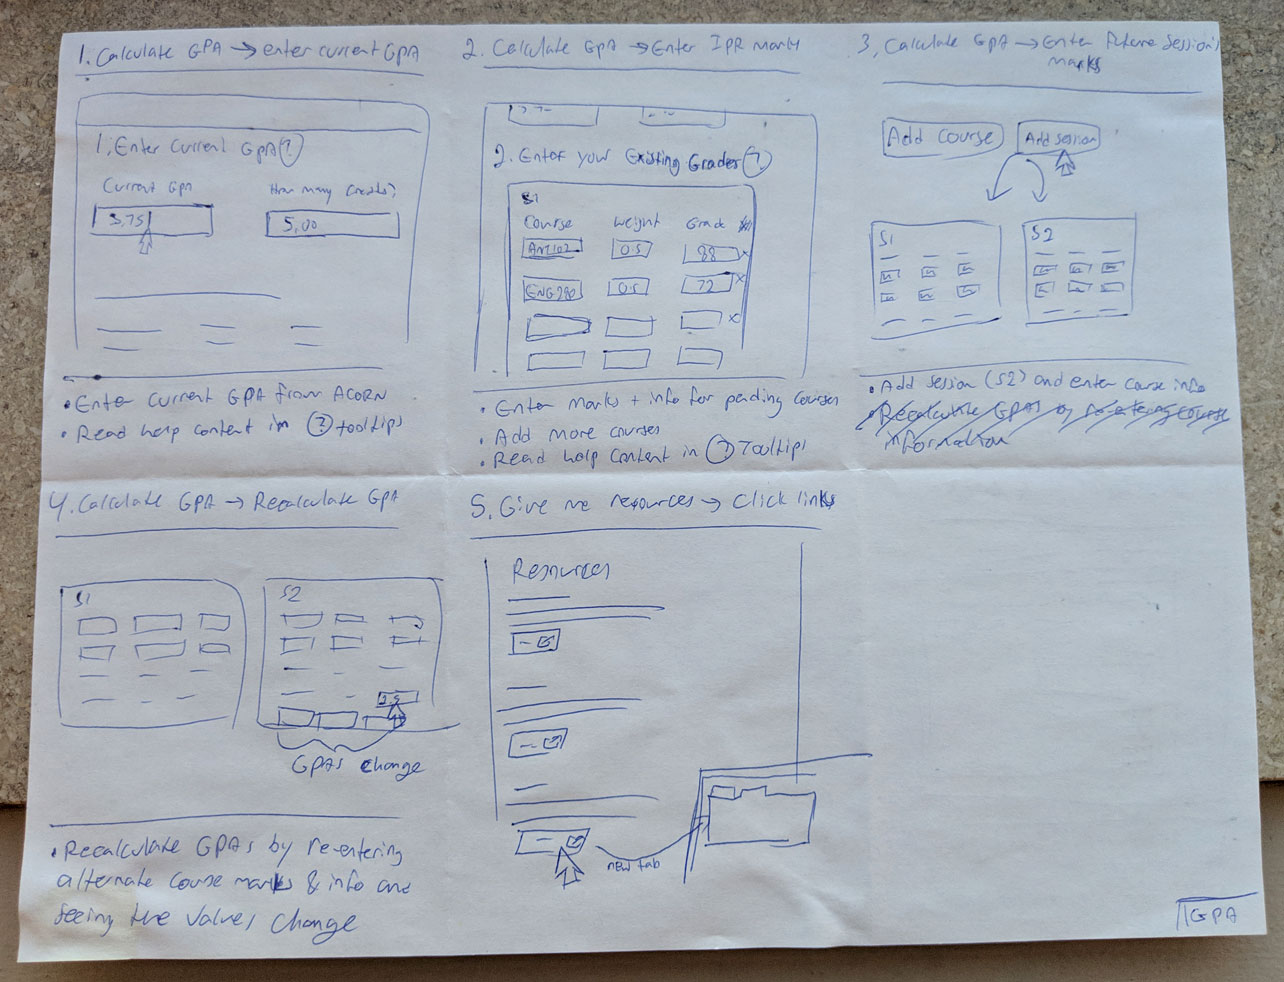 1. Calculate GPA → enter current GPA
1. Enter Current GPA ?
Current GPA
How many credits?
3.75
5.00
• Enter current GPA from ACORN
• Read help content in ? tooltips
2. Calculate GPA → Enter IPR marks
2. Enter your Existing Grades ?
S1
Course Weight Grade
ANT102 0.5 88 x
ENG280 0.5 72 x
x
• Enter marks + info for pending courses
• Add more courses
• Read help content in ? Tooltips
3. Calculate GPA → Enter future session's
marks
Add Course
Add session
S1
S2
• Add session (S2) and enter course info
• Recalculate GPAs by re-entering course
information
4. Calculate GPA → Recalculate GPA
S1
S2
GPAs change
• Recalculate GPAs by re-entering
alternate course marks & info and
seeing the values change
5. Give me resources → Click links
Resources
new tab
GPA